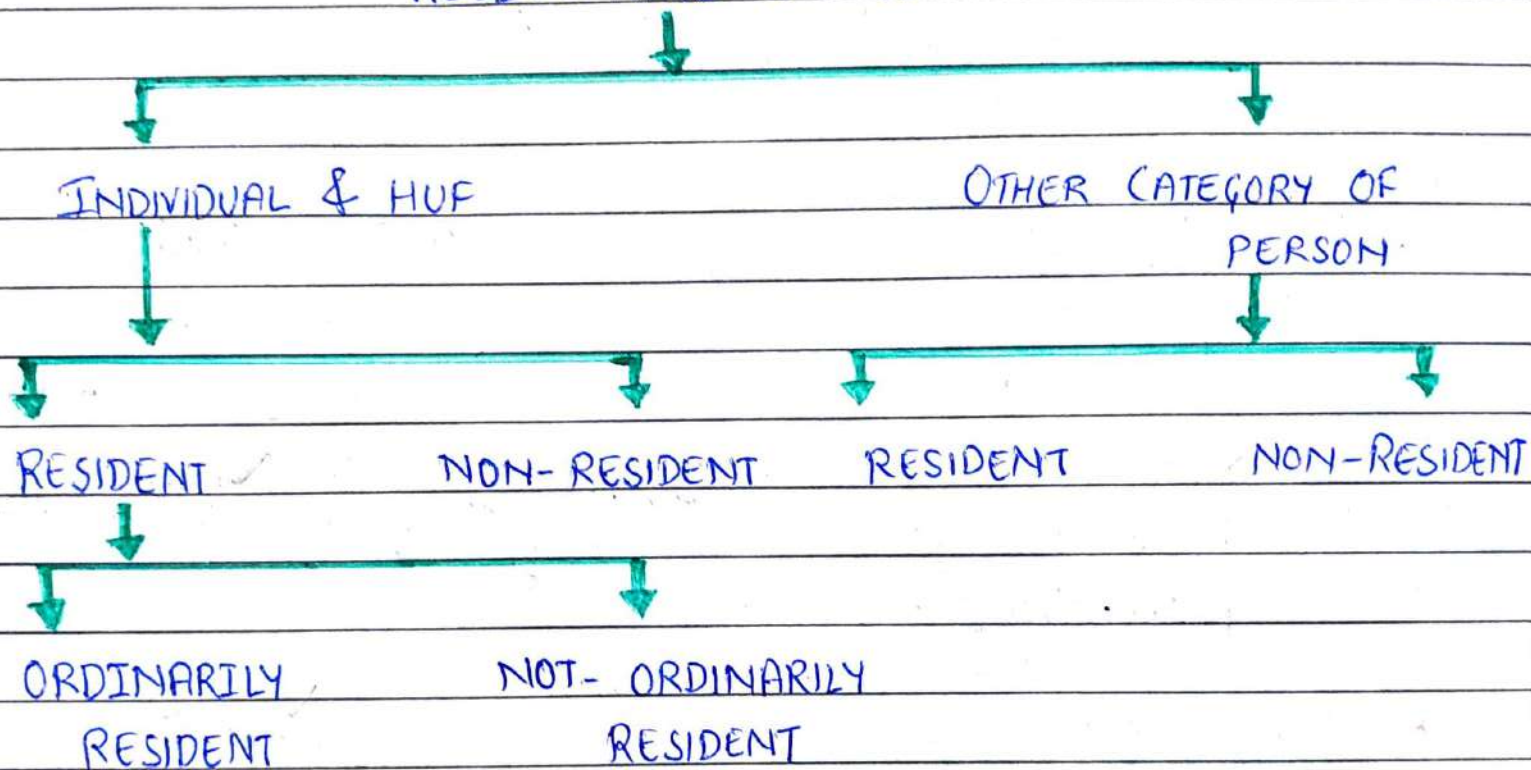 INDIVIDUAL & HUF
OTHER CATEGORY OF
PERSON
RESIDENT
NON-RESIDENT
RESIDENT
NON-RESIDENT
ORDINARILY
RESIDENT
NOT- ORDINARILY
RESIDENT